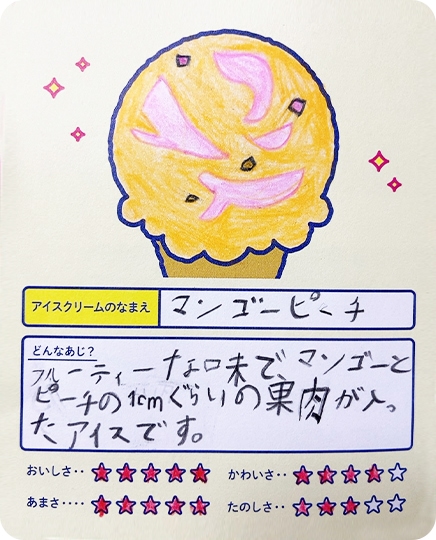 アイスクリームのなまえ マンゴーピーチ
どんなあじ?
フルーティーな口味で、マンゴーと
ピーチの1cmぐらいの果肉が入っ
たアイスです。
おいしさ‥ ★★★★★ かわいさ‥ ★★★★☆
あまさ‥‥ ★★★★★ たのしさ‥ ★★★☆☆